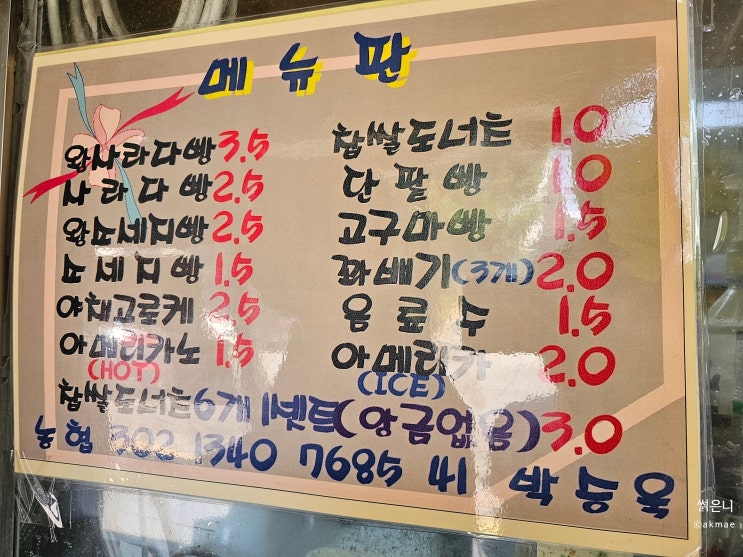 메뉴판
왕사라다빵 3.5
사라다빵 2.5
왕소세지빵 2.5
소세지빵 1.5
야채고로케 2.5
아메리카노 1.5
(HOT)
찹쌀도너츠 1.0
단팥빵 1.0
고구마빵 1.5
꽈배기(3개) 2.0
음료수 1.5
아메리카 2.0
(ICE)
찹쌀도너츠 6개 1셋트(앙금없음) 3.0
농협 302 1340 7685 41 박승욱
썱은니
©akmae